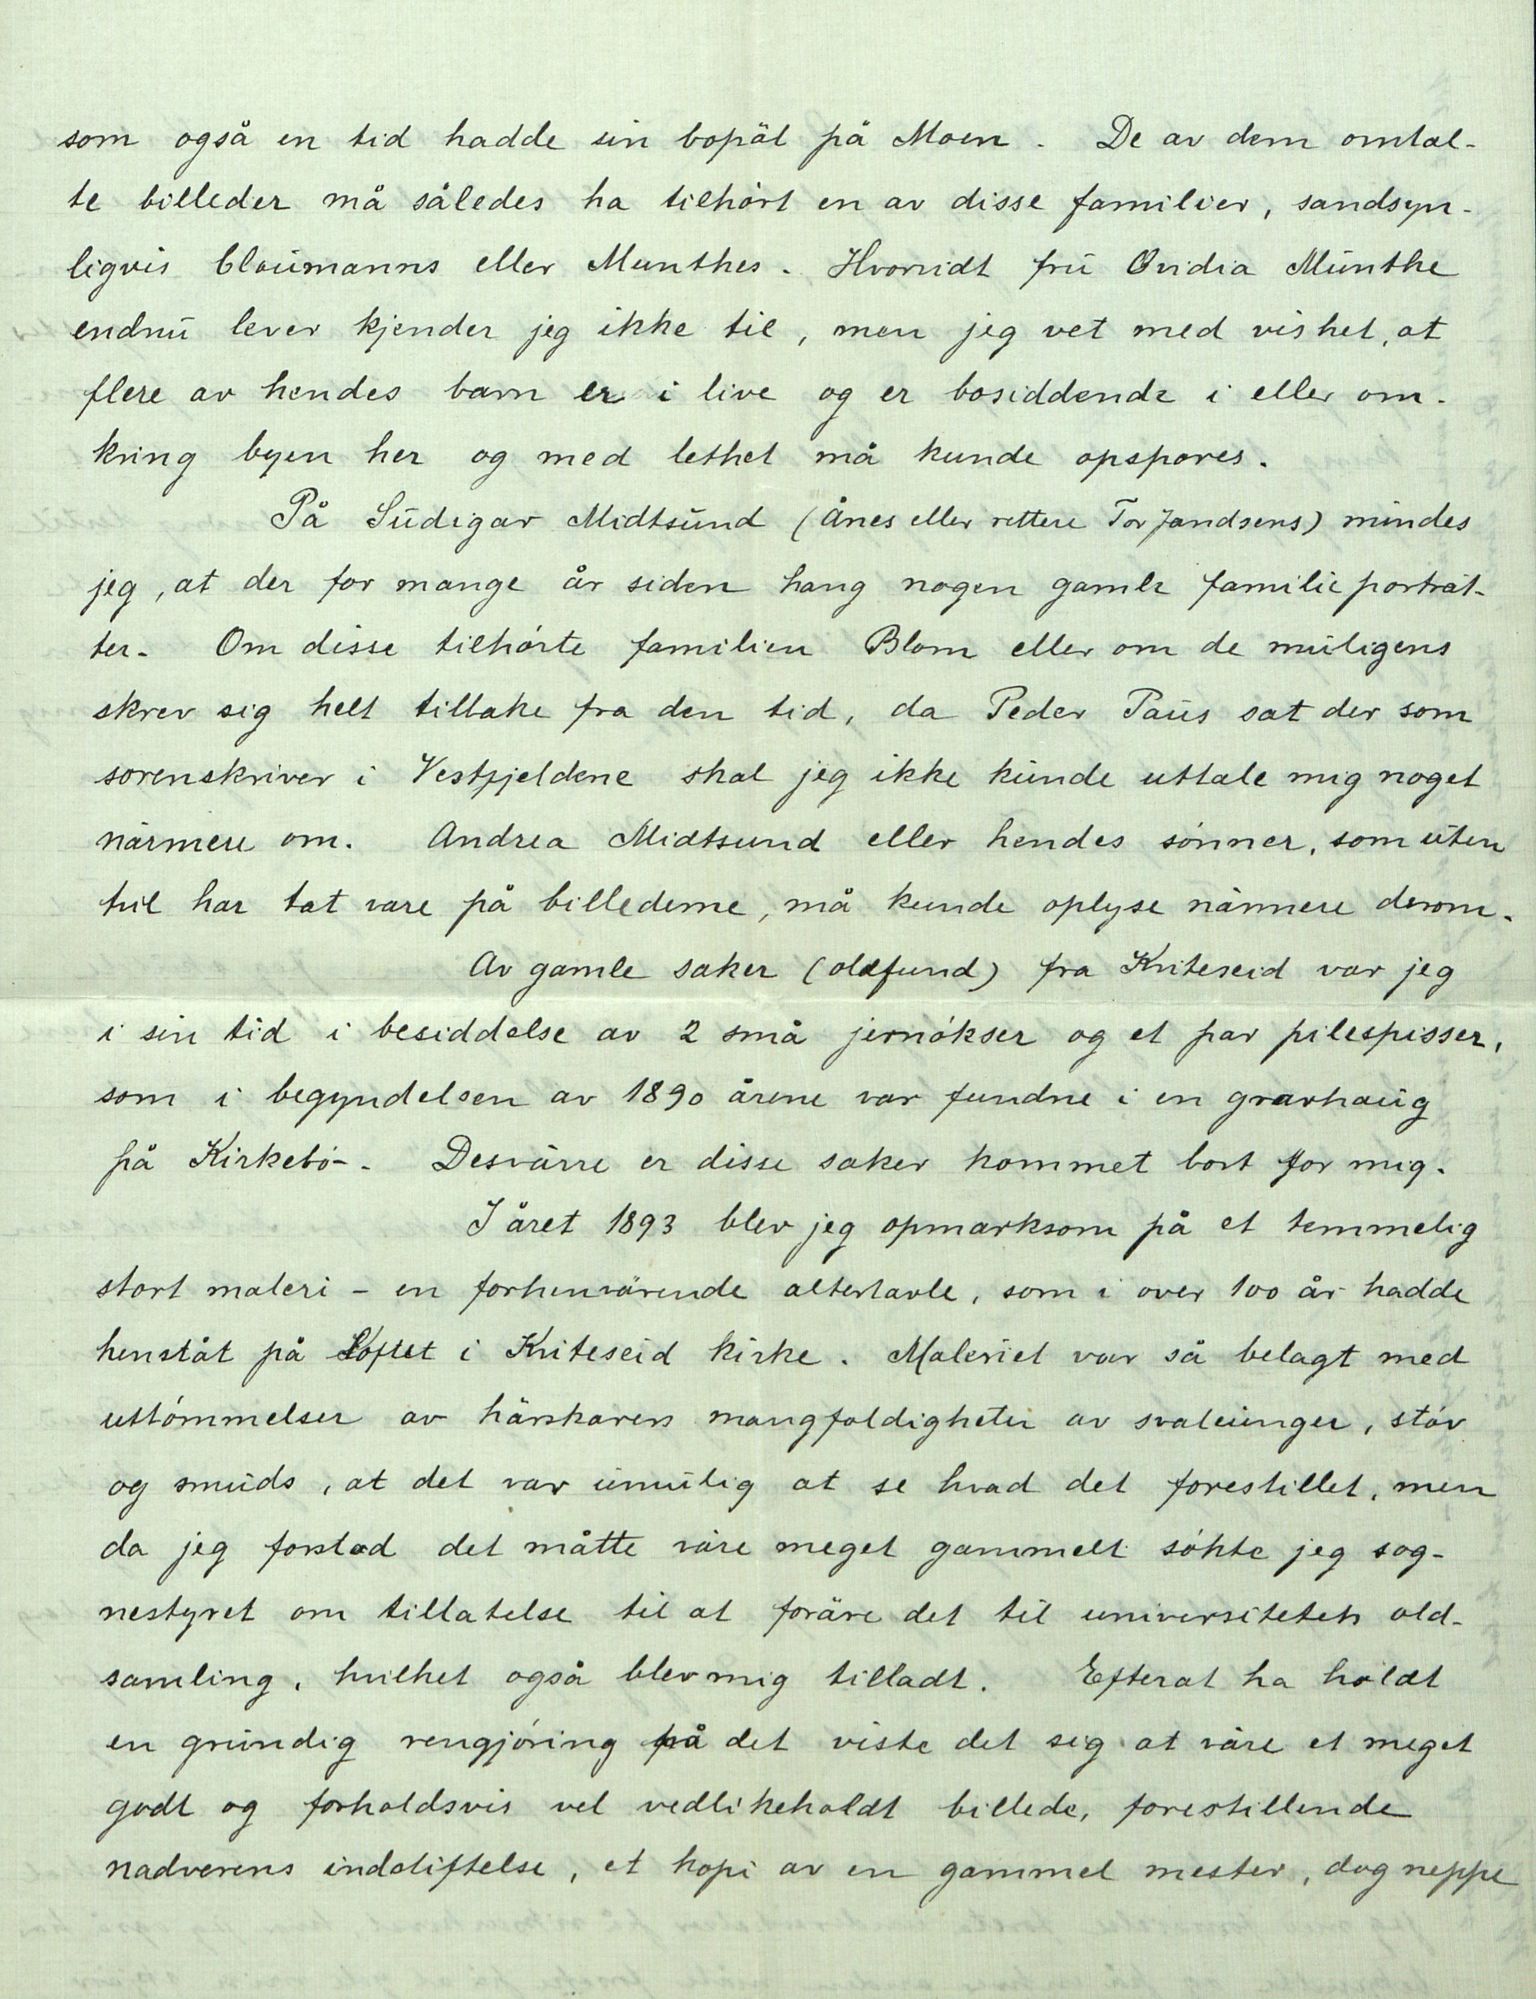 som også en tid hadde sin bopäl på Moen. De av dem omtal-
te billeder må således ha tilhört en av disse familier, sandsyn-
ligvis Claumanns eller Munthes. Hvorvidt fru Ovidia Munthe
endnu lever kjender jeg ikke til, men jeg vet med vishet, at
flere av hendes barn er i live og er bosiddende i eller om-
kring byen her og med lethet må kunde opspores.
På Sudigar Midtsund (Ånes eller rettere Tor Jandsens) mindes
jeg, at der for mange år siden hang nogen gamle familieporträt-
ter. Om disse tilhörte familien Blom eller om de muligens
skrev sig helt tilbake fra den tid, da Peder Paus sat der som
sorenskriver i Vestfjeldene skal jeg ikke kunde uttale mig noget
närmere om. Andrea Midtsund eller hendes sönner, som uten
tvil har tat vare på billederne, må kunde oplyse närmere derom.
Av gamle saker (oldfund) fra Kviteseid var jeg
i sin tid i besiddelse av 2 små jernökser og et par pilespisser,
som i begyndelsen av 1890 årene var fundne i en gravhaug
på Kirkebö-. Desvärre er disse saker kommet bort for mig.
I året 1893 blev jeg opmarksom på et temmelig
stort maleri - en forhenvärende altertavle, som i over 100 år hadde
henståt på Loftet i Kviteseid kirke. Maleriet var så belagt med
uttömmelser av härskarers mangfoldigheter av svaleunger, stöv
og smuds, at det var umulig at se hvad det forestillet, men
da jeg forstod det måtte väre meget gammelt sökte jeg sog-
nestyret om tillatelse til at foräre det til universitetets old-
samling, hvilket også blev mig tilladt. Efterat ha holdt
en grundig rengjöring på det viste det sig at väre et meget
godt og forholdsvis vel vedlikeholdt billede, forestillende
nadverens indstiftelse, et kopi av en gammel mester, dog neppe